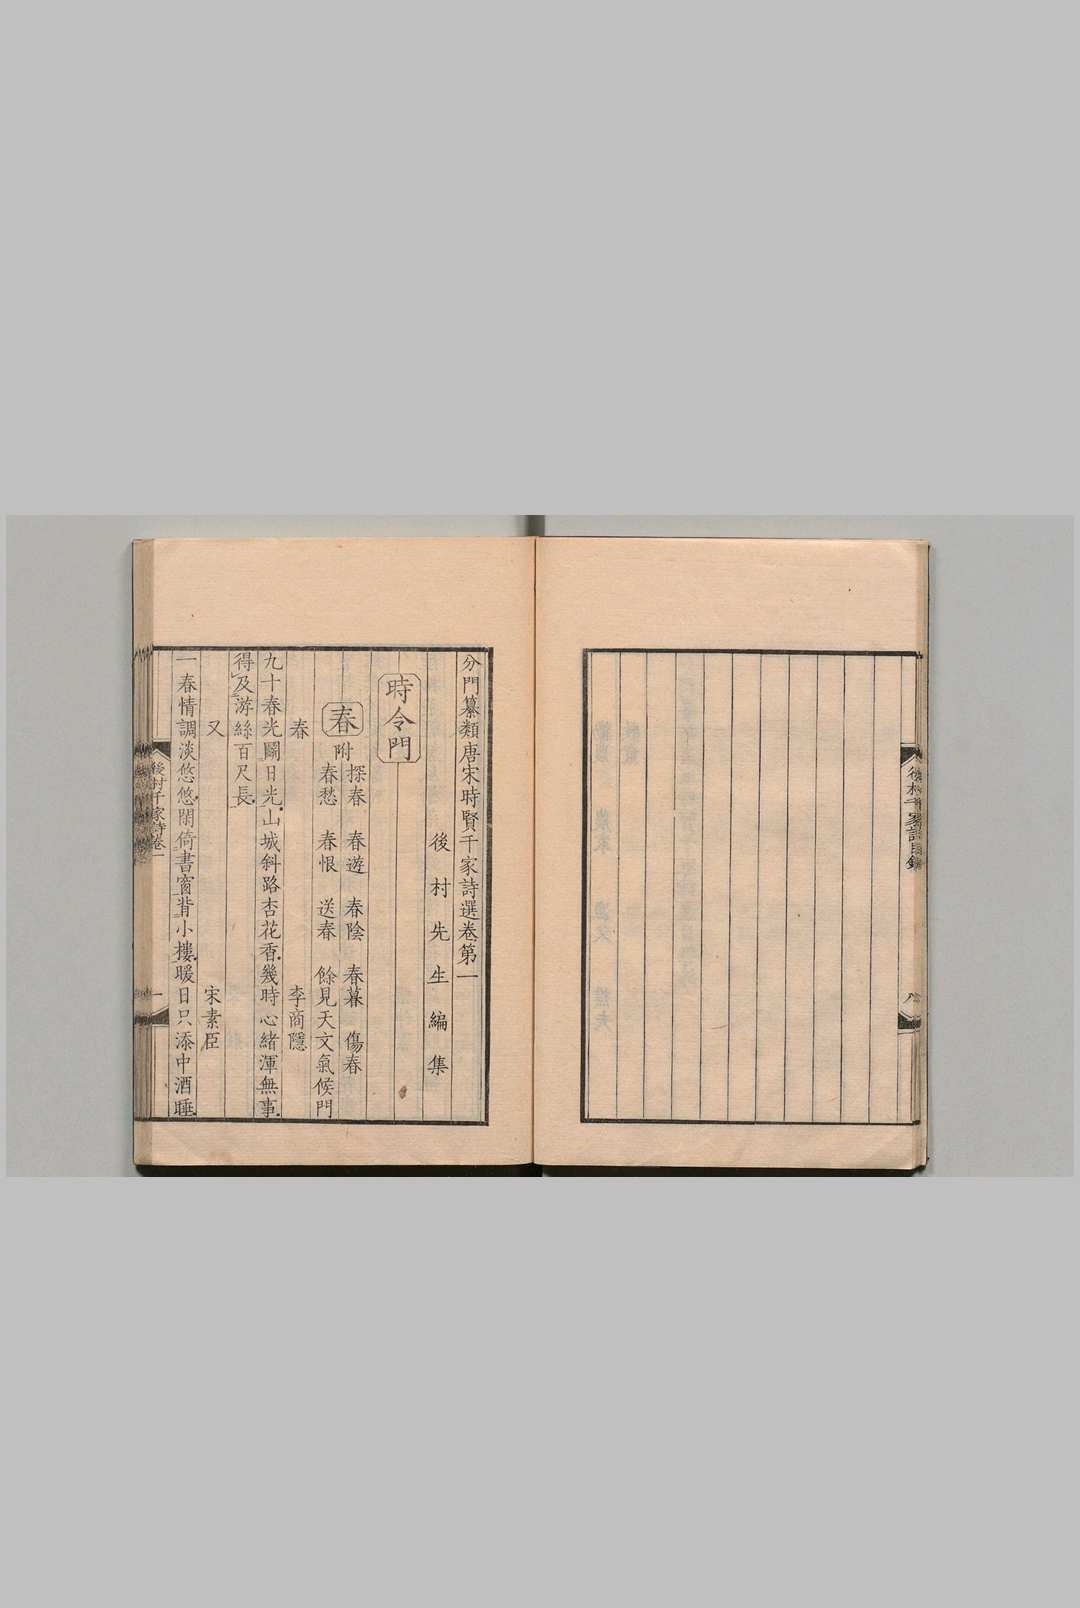 後村千家詩目錄
八
分門纂類唐宋時賢千家詩選卷第一
後村先生編集
時令門
春
附
探春 春遊 春陰 春暮 傷春
春愁 春恨 送春 餘見天文氣候門
春 李商隱
九十春光鬭日光山城斜路杏花香幾時心緒渾無事
得及游絲百尺長
又 宋素臣
一春情調淡悠悠閑倚書窗背小樓暖日只添中酒睡
後村千家詩卷一
一